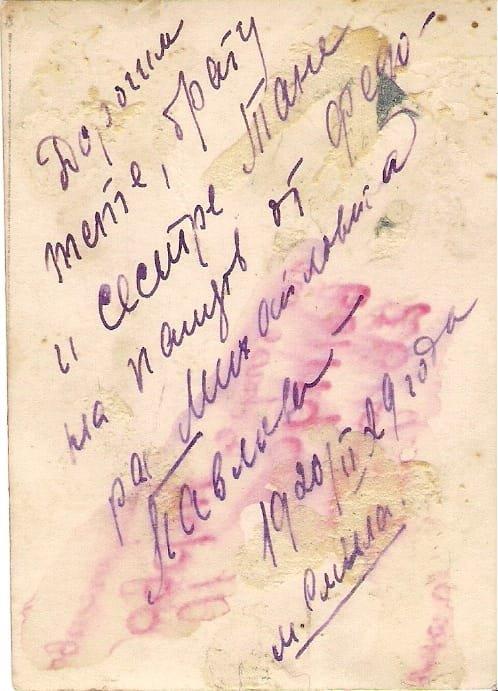 Дорогим
тете, брату
и сестре Тане
на память от Федо-
ра Михайловича
Павлова –
1920/II 29 года
м. Смела.